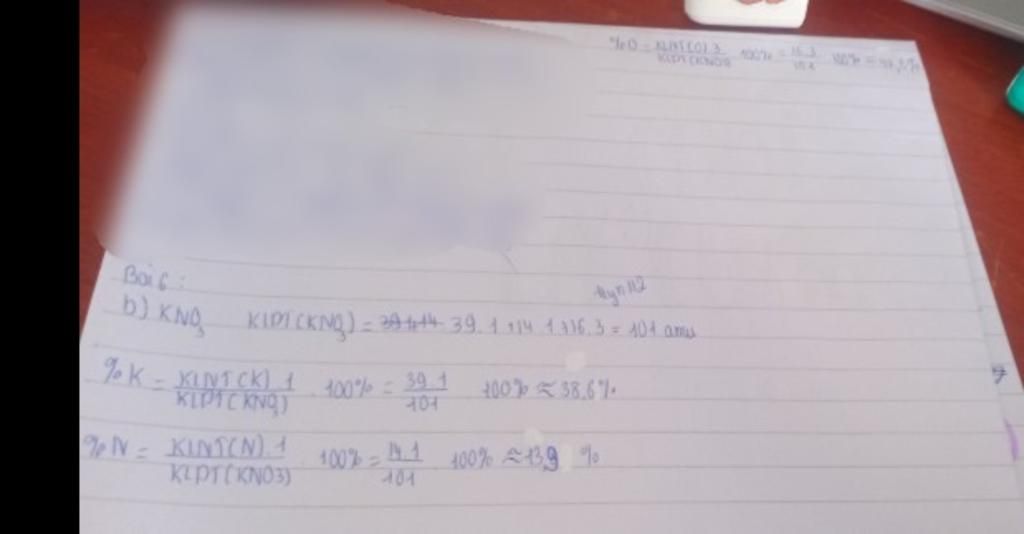 %O = KLNT(O).3 / KLPT(KNO3) . 100% = 16.3 / 101 . 100% = 47,5%
Bài 6 :
b) KNO3 KLPT(KNO3) = 39.1+14.1+16.3 = 101 amu
%K = KLNT(K).1 / KLPT(KNO3) . 100% = 39.1 / 101 . 100% ≈ 38,6%
%N = KLNT(N).1 / KLPT(KNO3) . 100% = 14.1 / 101 . 100% ≈ 13,9 %